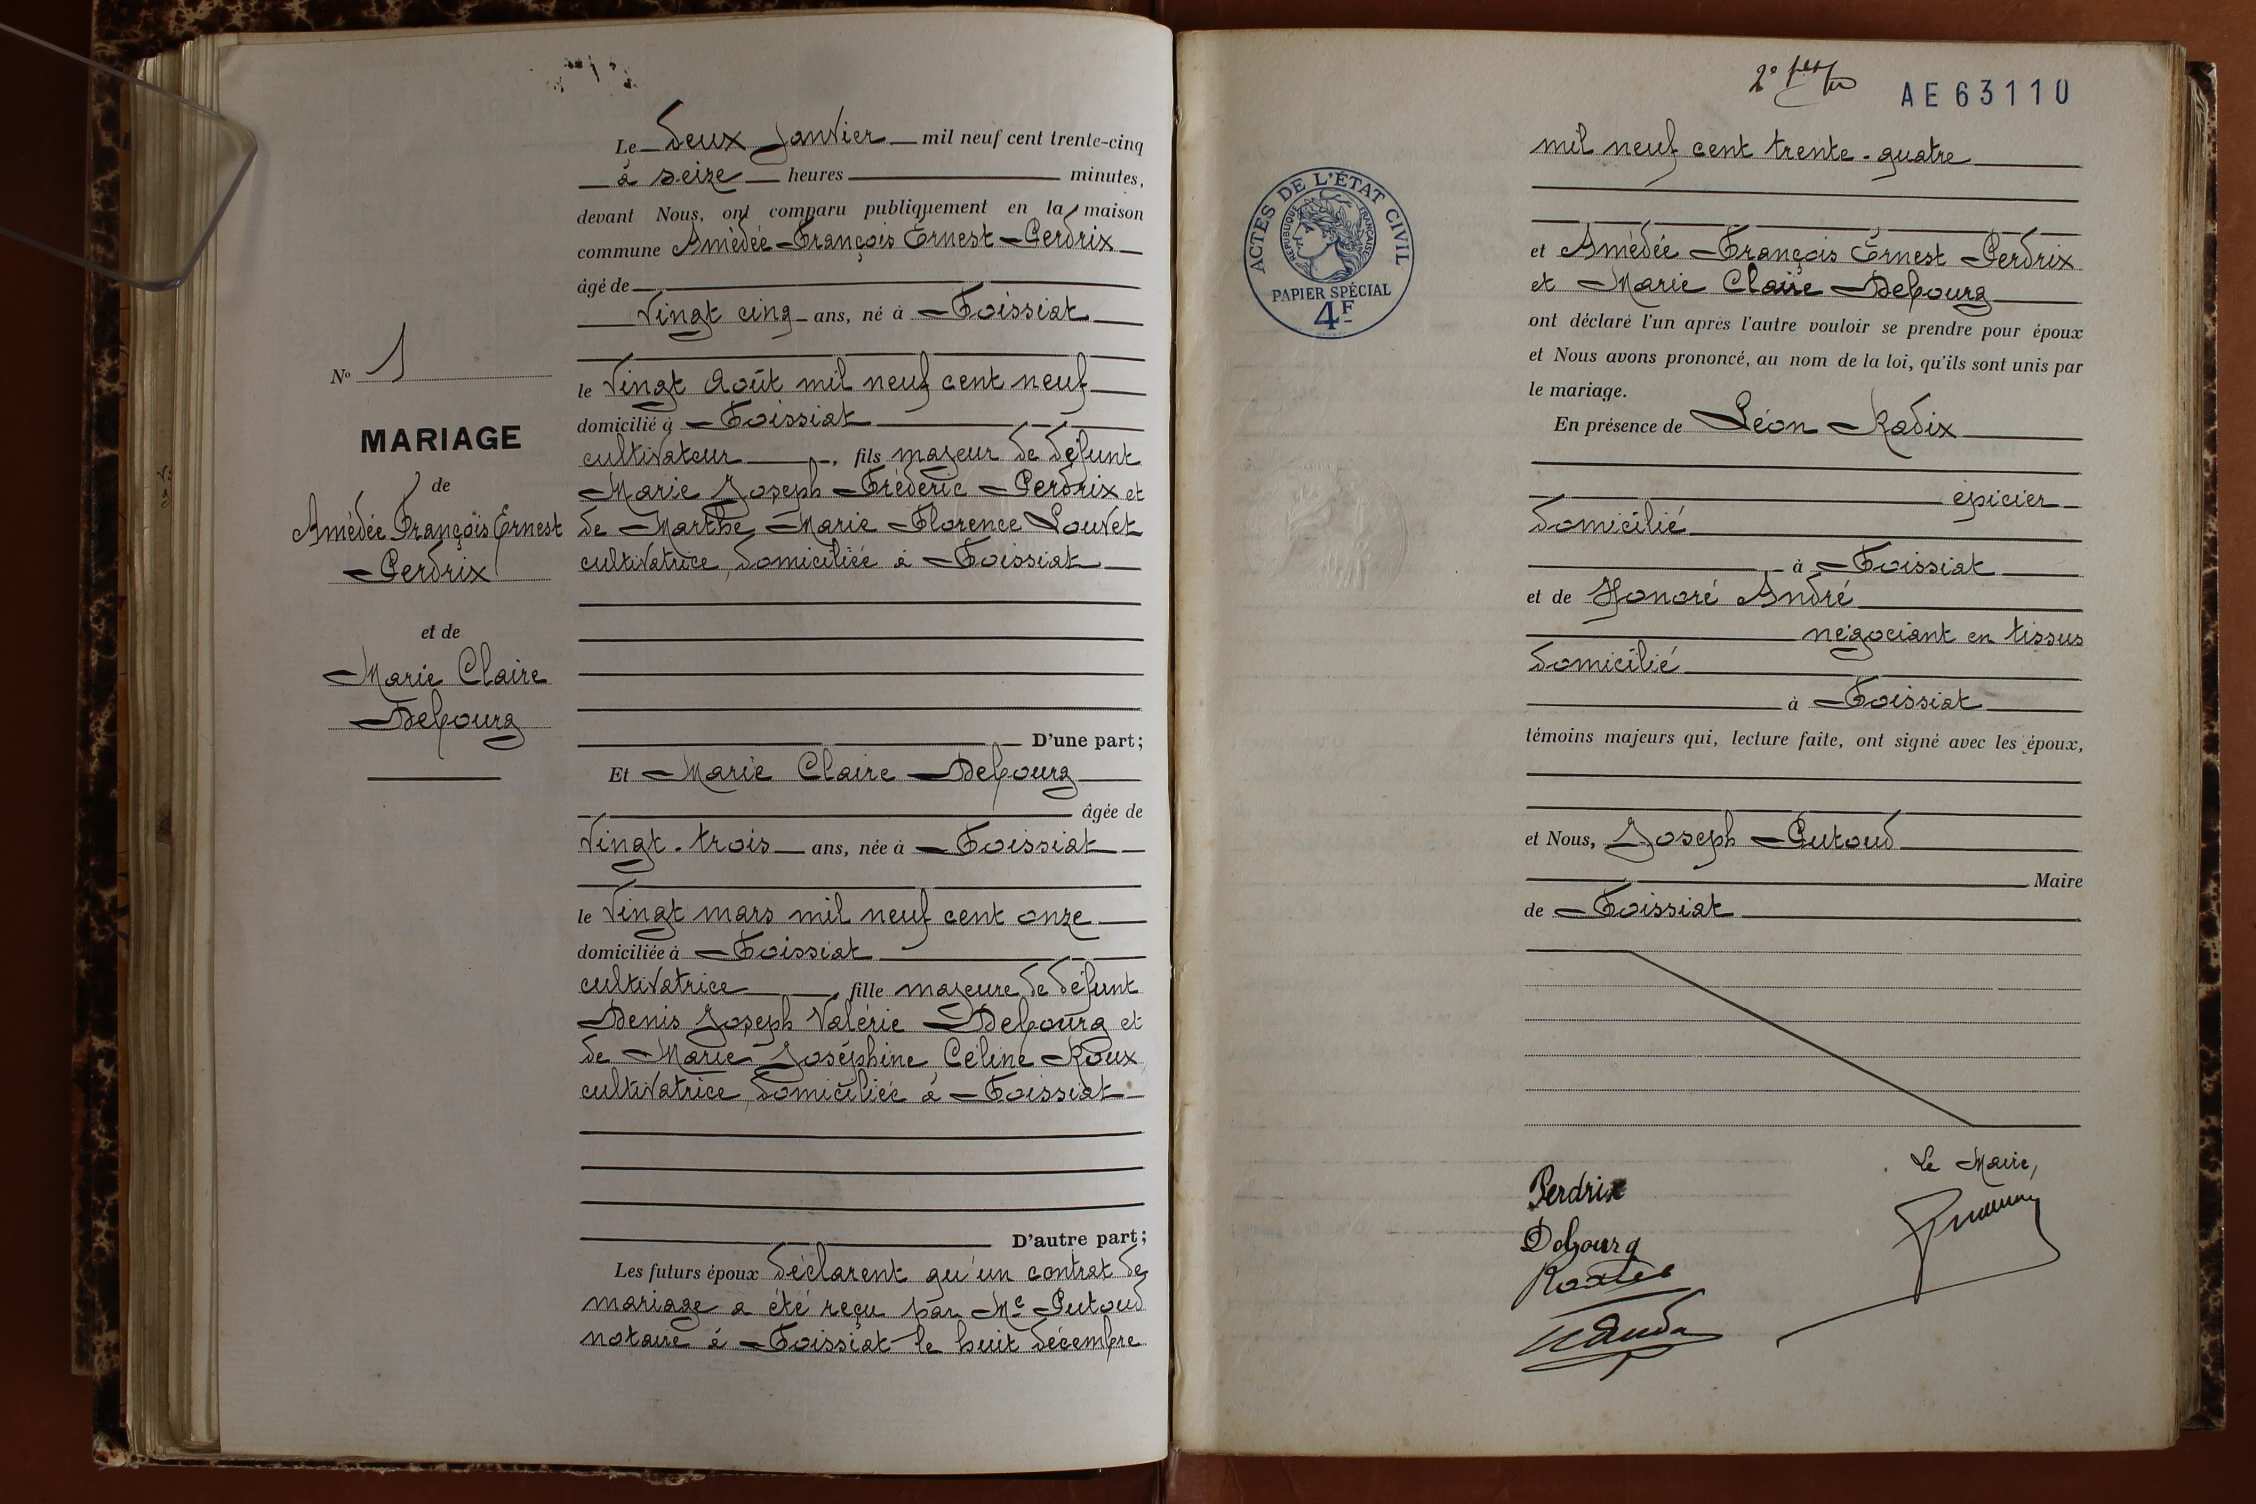 Le deux Janvier mil neuf cent trente-cinq
à seize heures minutes,
devant Nous, ont comparu publiquement en la maison
commune Amédée François Ernest Perdrix
âgé de
vingt cinq ans, né à Foissiat
le vingt Août mil neuf cent neuf
domicilié à Foissiat
cultivateur, fils majeur de défunt
Marie Joseph Fréderic Perdrix et
de Marthe Marie Florence Louvet
cultivatrice, domiciliée à Foissiat
D'une part;
Et Marie Claire Debourg
âgée de
vingt-trois ans, née à Foissiat
le vingt mars mil neuf cent onze
domiciliée à Foissiat
cultivatrice, fille majeure de défunt
Denis Joseph Valérie Debourg et
de Marie Joséphine Céline Roux
cultivatrice, domiciliée à Foissiat
D'autre part;
Les futurs époux déclarent qu'un contrat de
mariage a été reçu par Me Putoud
notaire à Foissiat le huit décembre
No 1
MARIAGE
de
Amédée François Ernest
Perdrix
et de
Marie Claire
Debourg
2e
AE 63110
ACTES DE L'ÉTAT CIVIL
RÉPUBLIQUE FRANÇAISE
PAPIER SPÉCIAL
4F
mil neuf cent trente-quatre
et Amédée François Ernest Perdrix
et Marie Claire Debourg
ont déclaré l'un après l'autre vouloir se prendre pour époux
et Nous avons prononcé, au nom de la loi, qu'ils sont unis par
le mariage.
En présence de Léon Rodix
épicier
domicilié
à Foissiat
et de Honoré André
négociant en tissus
domicilié
à Foissiat
témoins majeurs qui, lecture faite, ont signé avec les époux,
et Nous, Joseph Putoud
Maire
de Foissiat
Le Maire,
Perdrix
Debourg